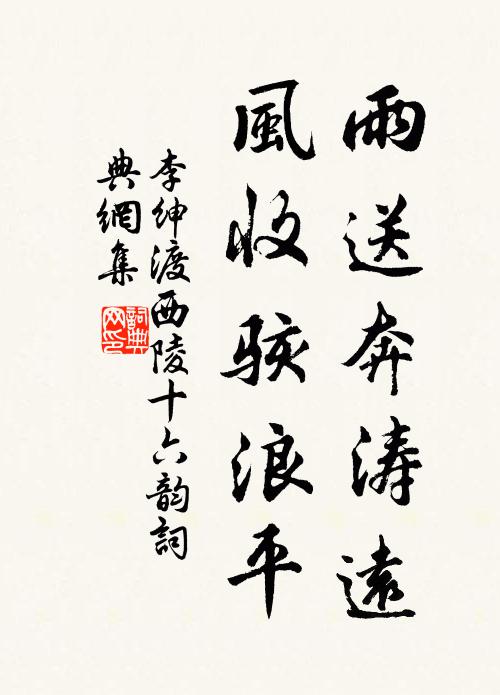 雨送奔涛遠
風收駭浪平
李紳渡西陵十六韵詞
典網集
詞典网印